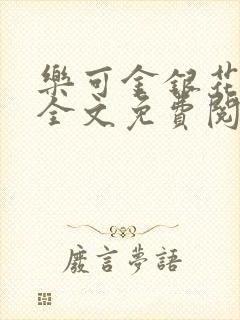 樂可金銀花
全文免費閱
廢言夢語